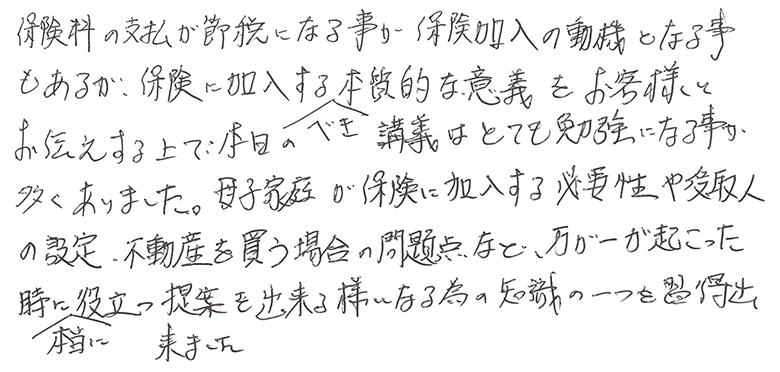 保険料の支払が節税になる事が保険加入の動機となる事
もあるが、保険に加入する本質的な意義をお客様に
お伝えする上で、本日の講義はとても勉強になる事が
べき
多くありました。母子家庭が保険に加入する必要性や受取人
の設定、不動産を買う場合の問題点など、万が一が起こった
時に役立つ提案を出来る様になる為の知識の一つを習得出
本当に
来ました